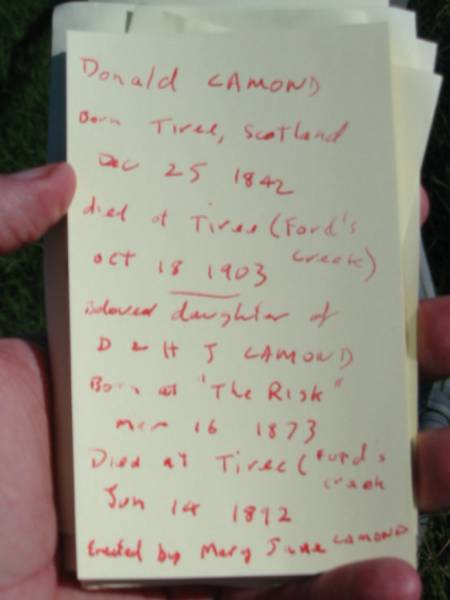 Donald LAMOND
Born Tiree, Scotland
Dec 25 1842
died at Tiree (Ford's
creek)
Oct 18 1903
Beloved daughter of
D & H J LAMOND
Born at "The Risk"
Mar 16 1873
Died at Tiree (Ford's
creek
Jun 14 1892
Erected by Mary Jane LAMOND